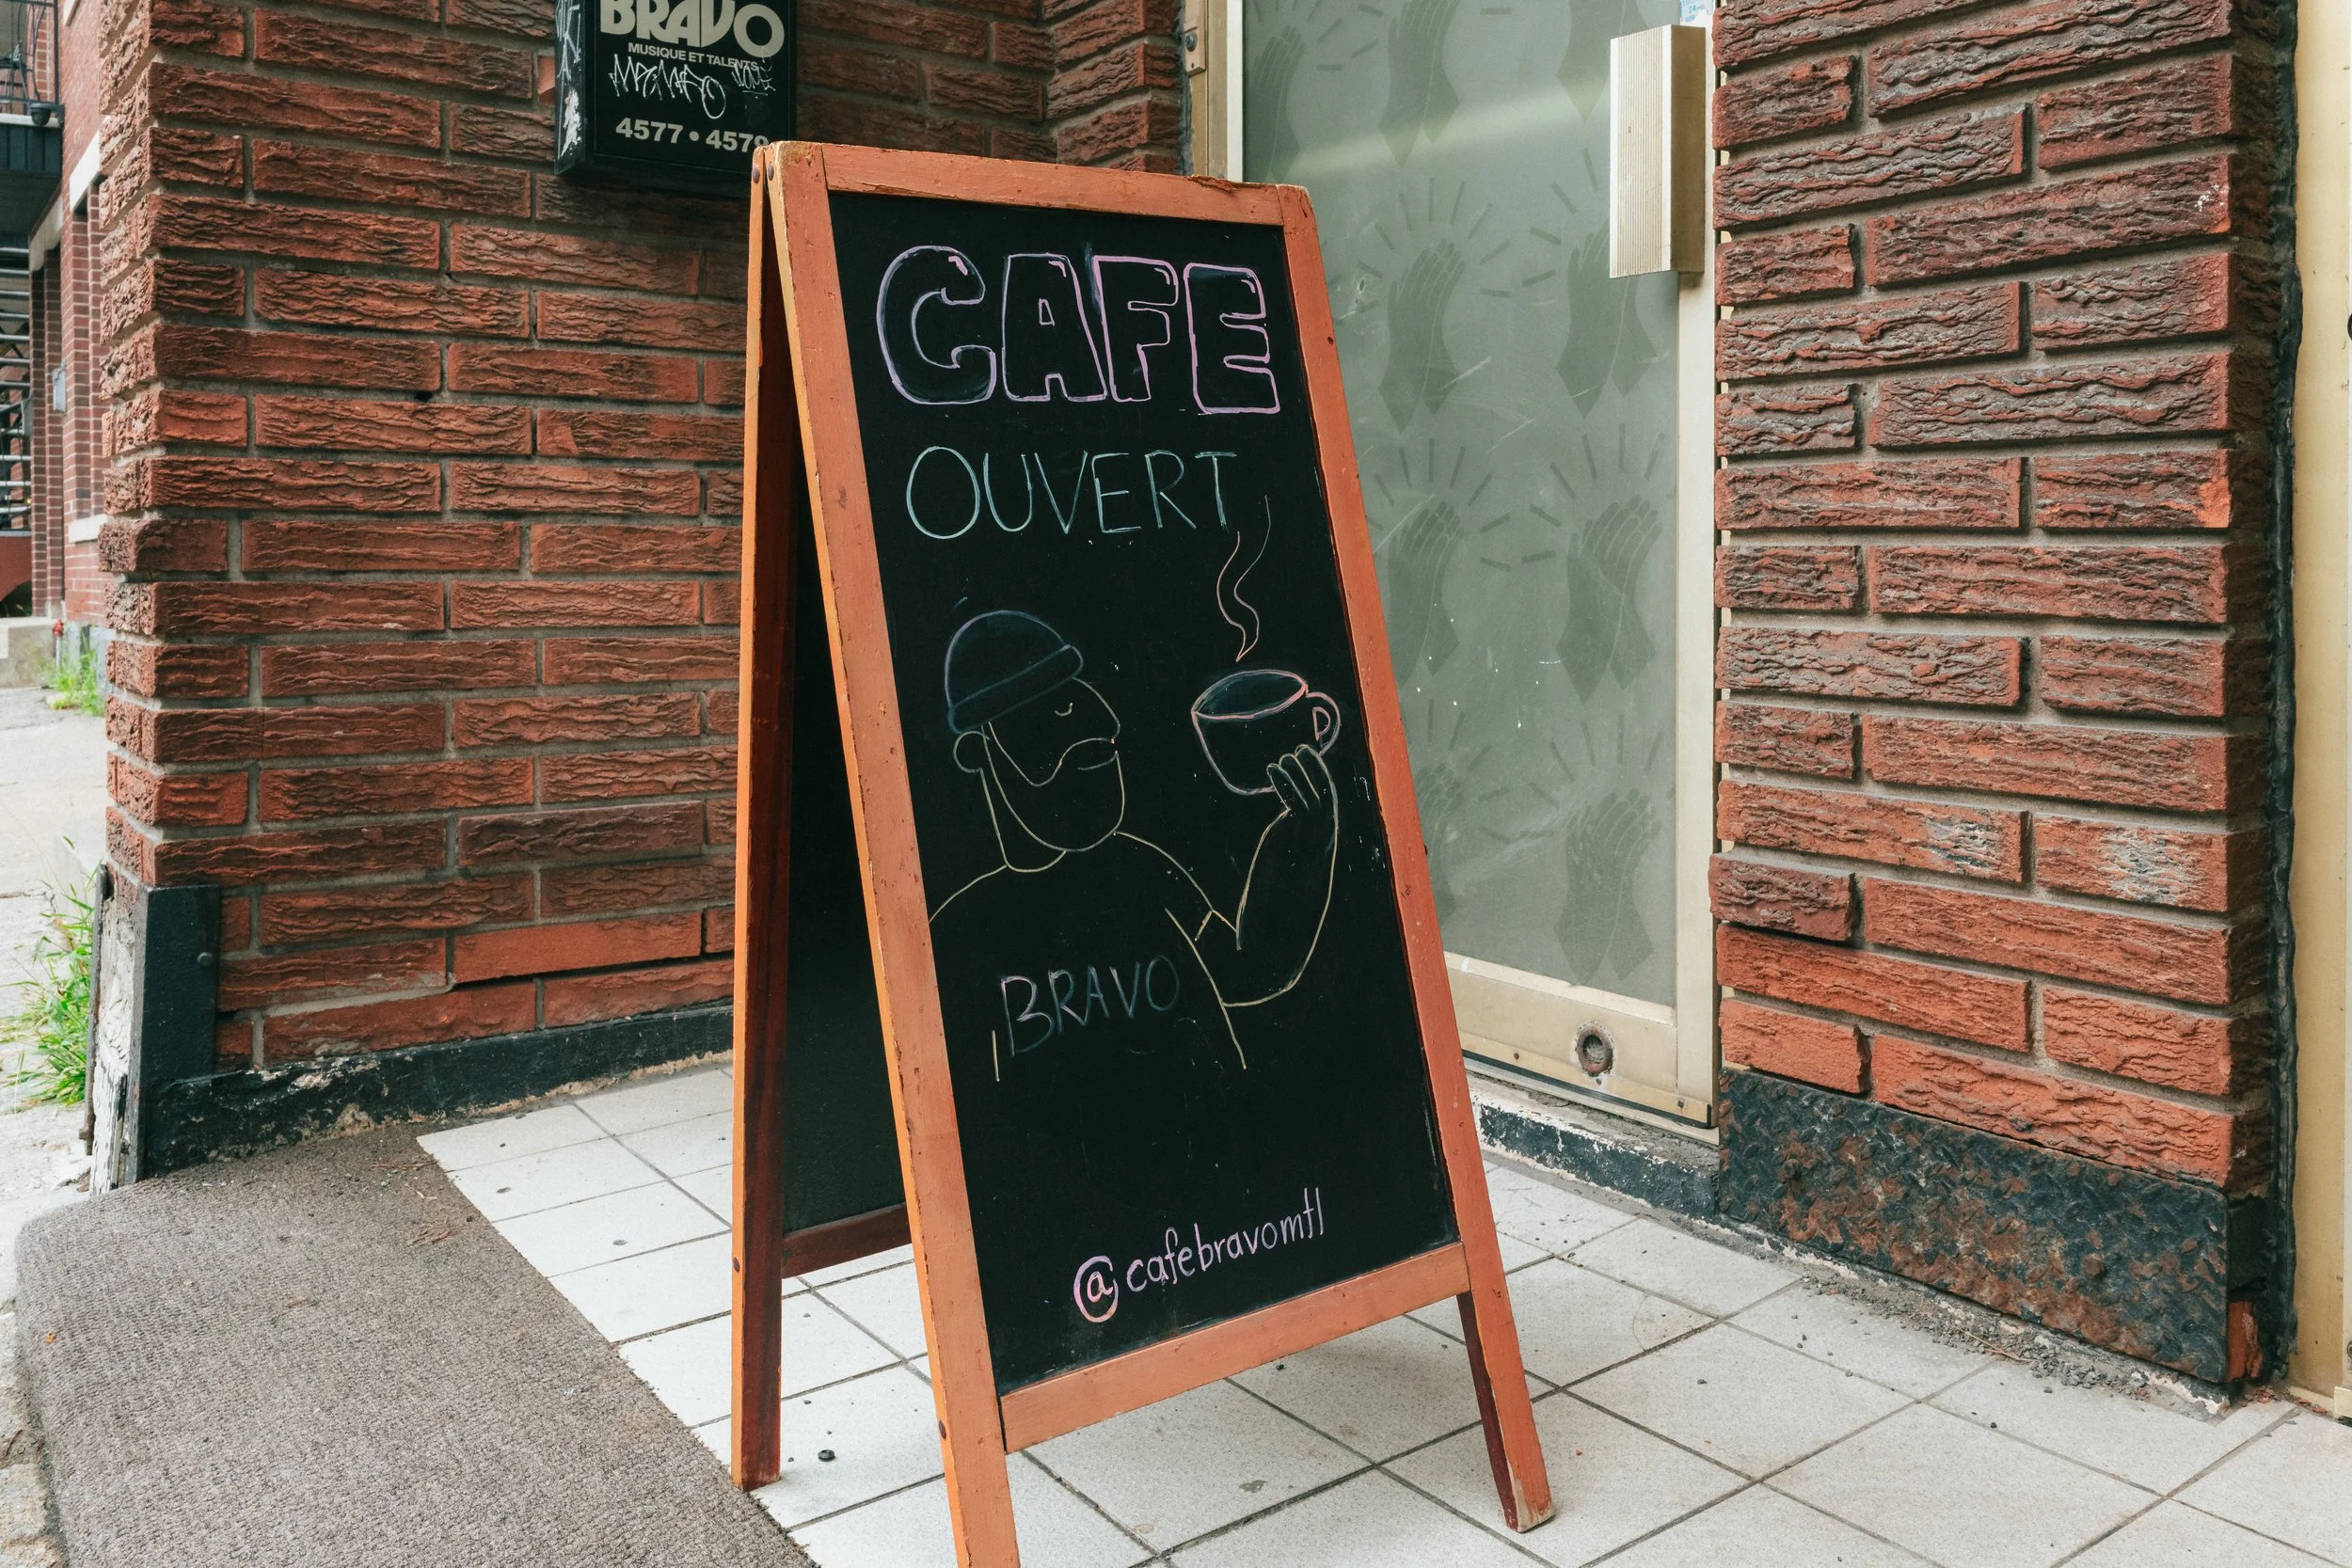 BRAVO
MUSIQUE ET TALENTS
4577 • 4579
CAFE
OUVERT
BRAVO
@cafebravomtl